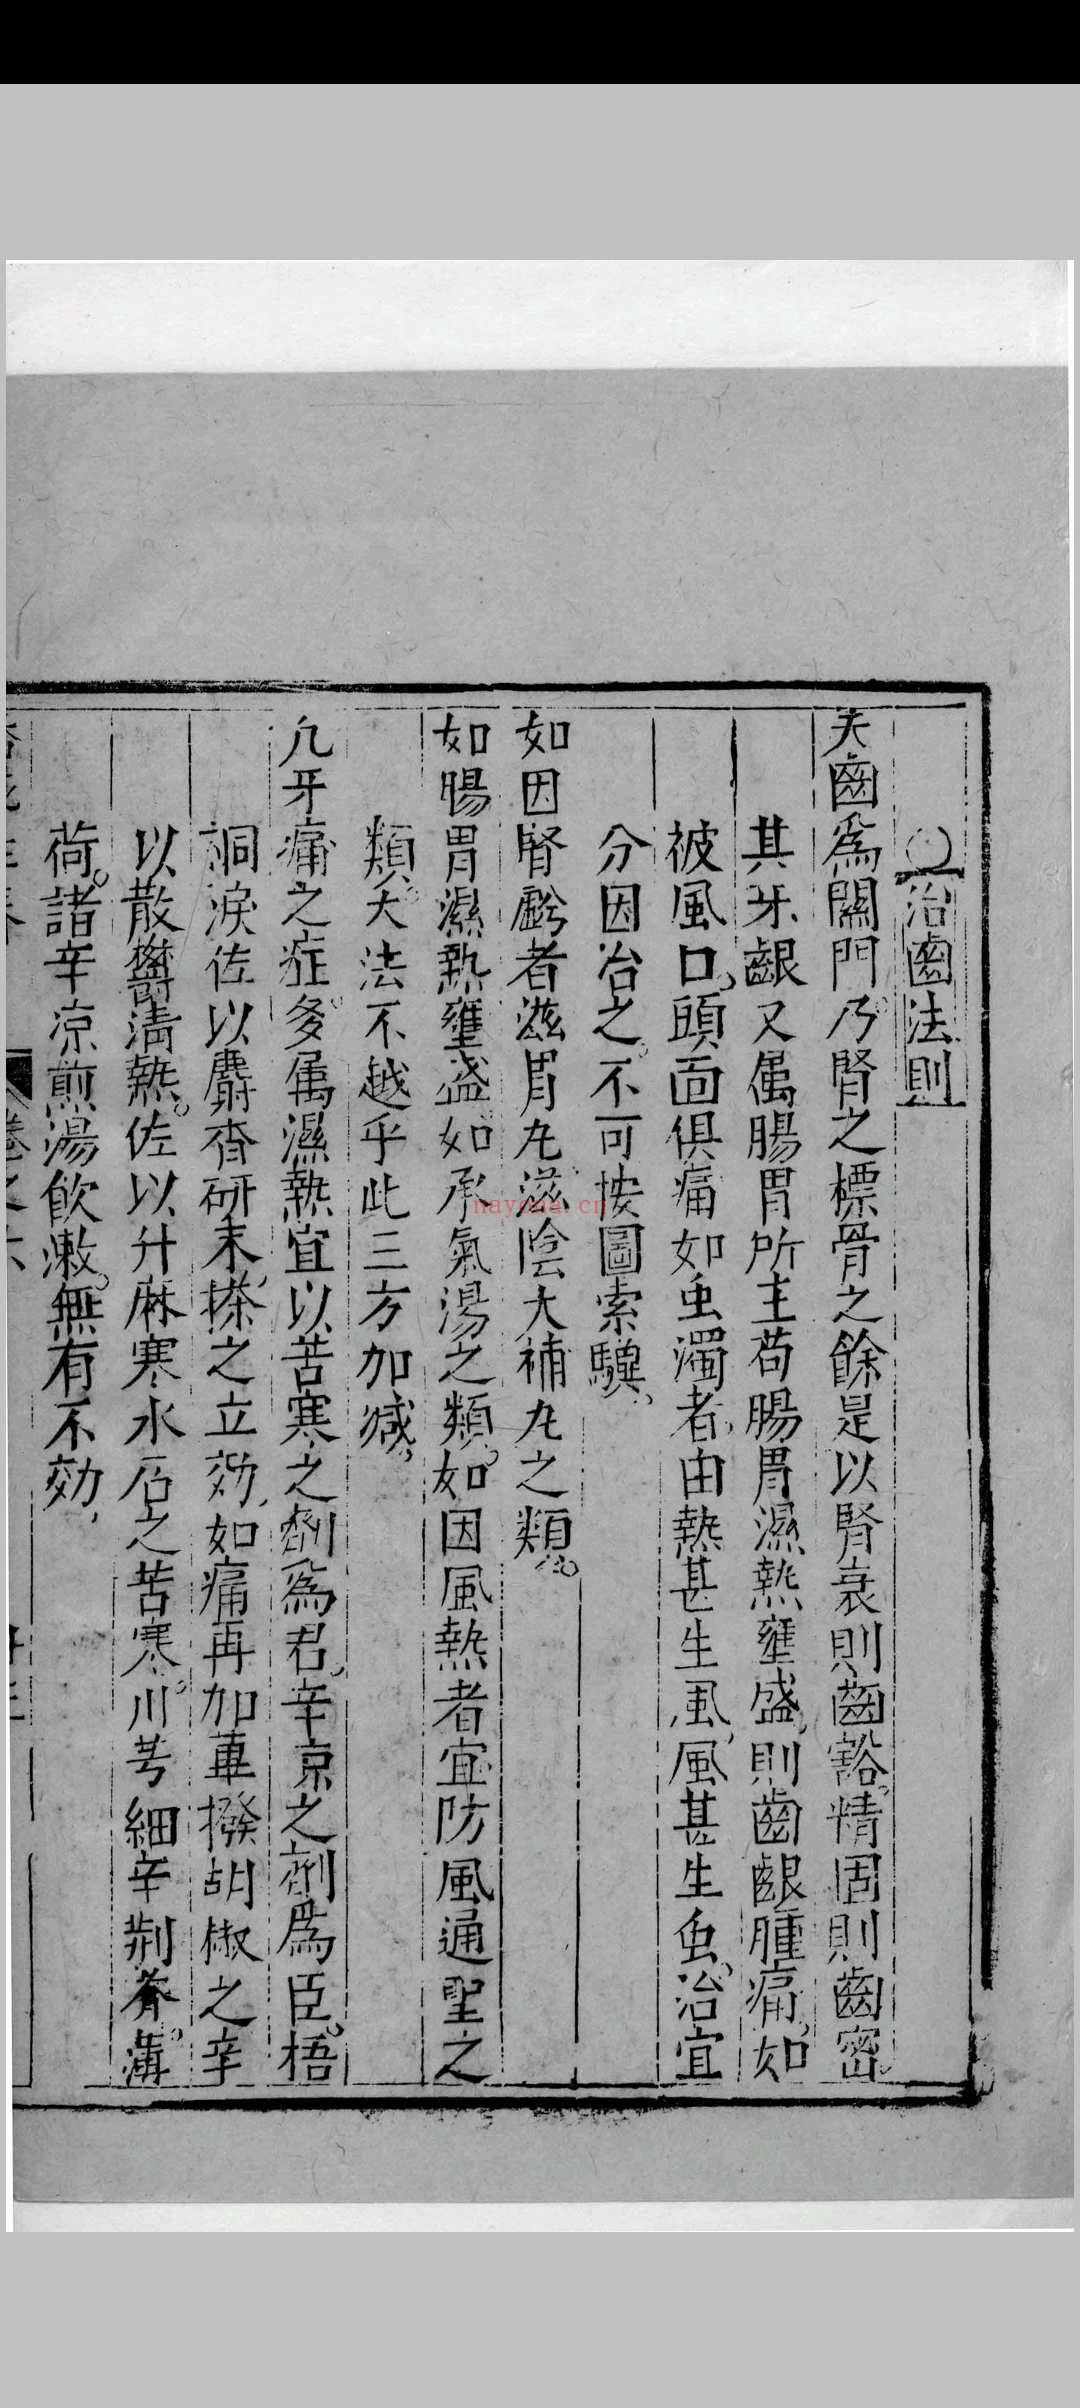 治齒法則
夫齒爲關門乃腎之標骨之餘是以腎衰則齒豁精固則齒密
其牙齦又属腸胃所主苟腸胃濕熱壅盛則齒齦腫痛如
被風口頭面俱痛如虫濁者由熱甚生風風甚生虫治宜
分因治之不可按圖索驥
如因腎虧者滋腎丸滋陰大補丸之類
如腸胃濕熱壅盛如承氣湯之類如因風熱者宜防風通聖之
類大法不越乎此三方加减
凡牙痛之症多属濕熱宜以苦寒之劑爲君辛凉之劑爲臣梧
桐淚佐以麝香研末搽之立効如痛再加蓽撥胡椒之辛
以散鬱清熱佐以升麻寒水石之苦寒川芎細辛荆芥薄
荷諸辛凉煎湯飲漱無有不効
nayona.cn